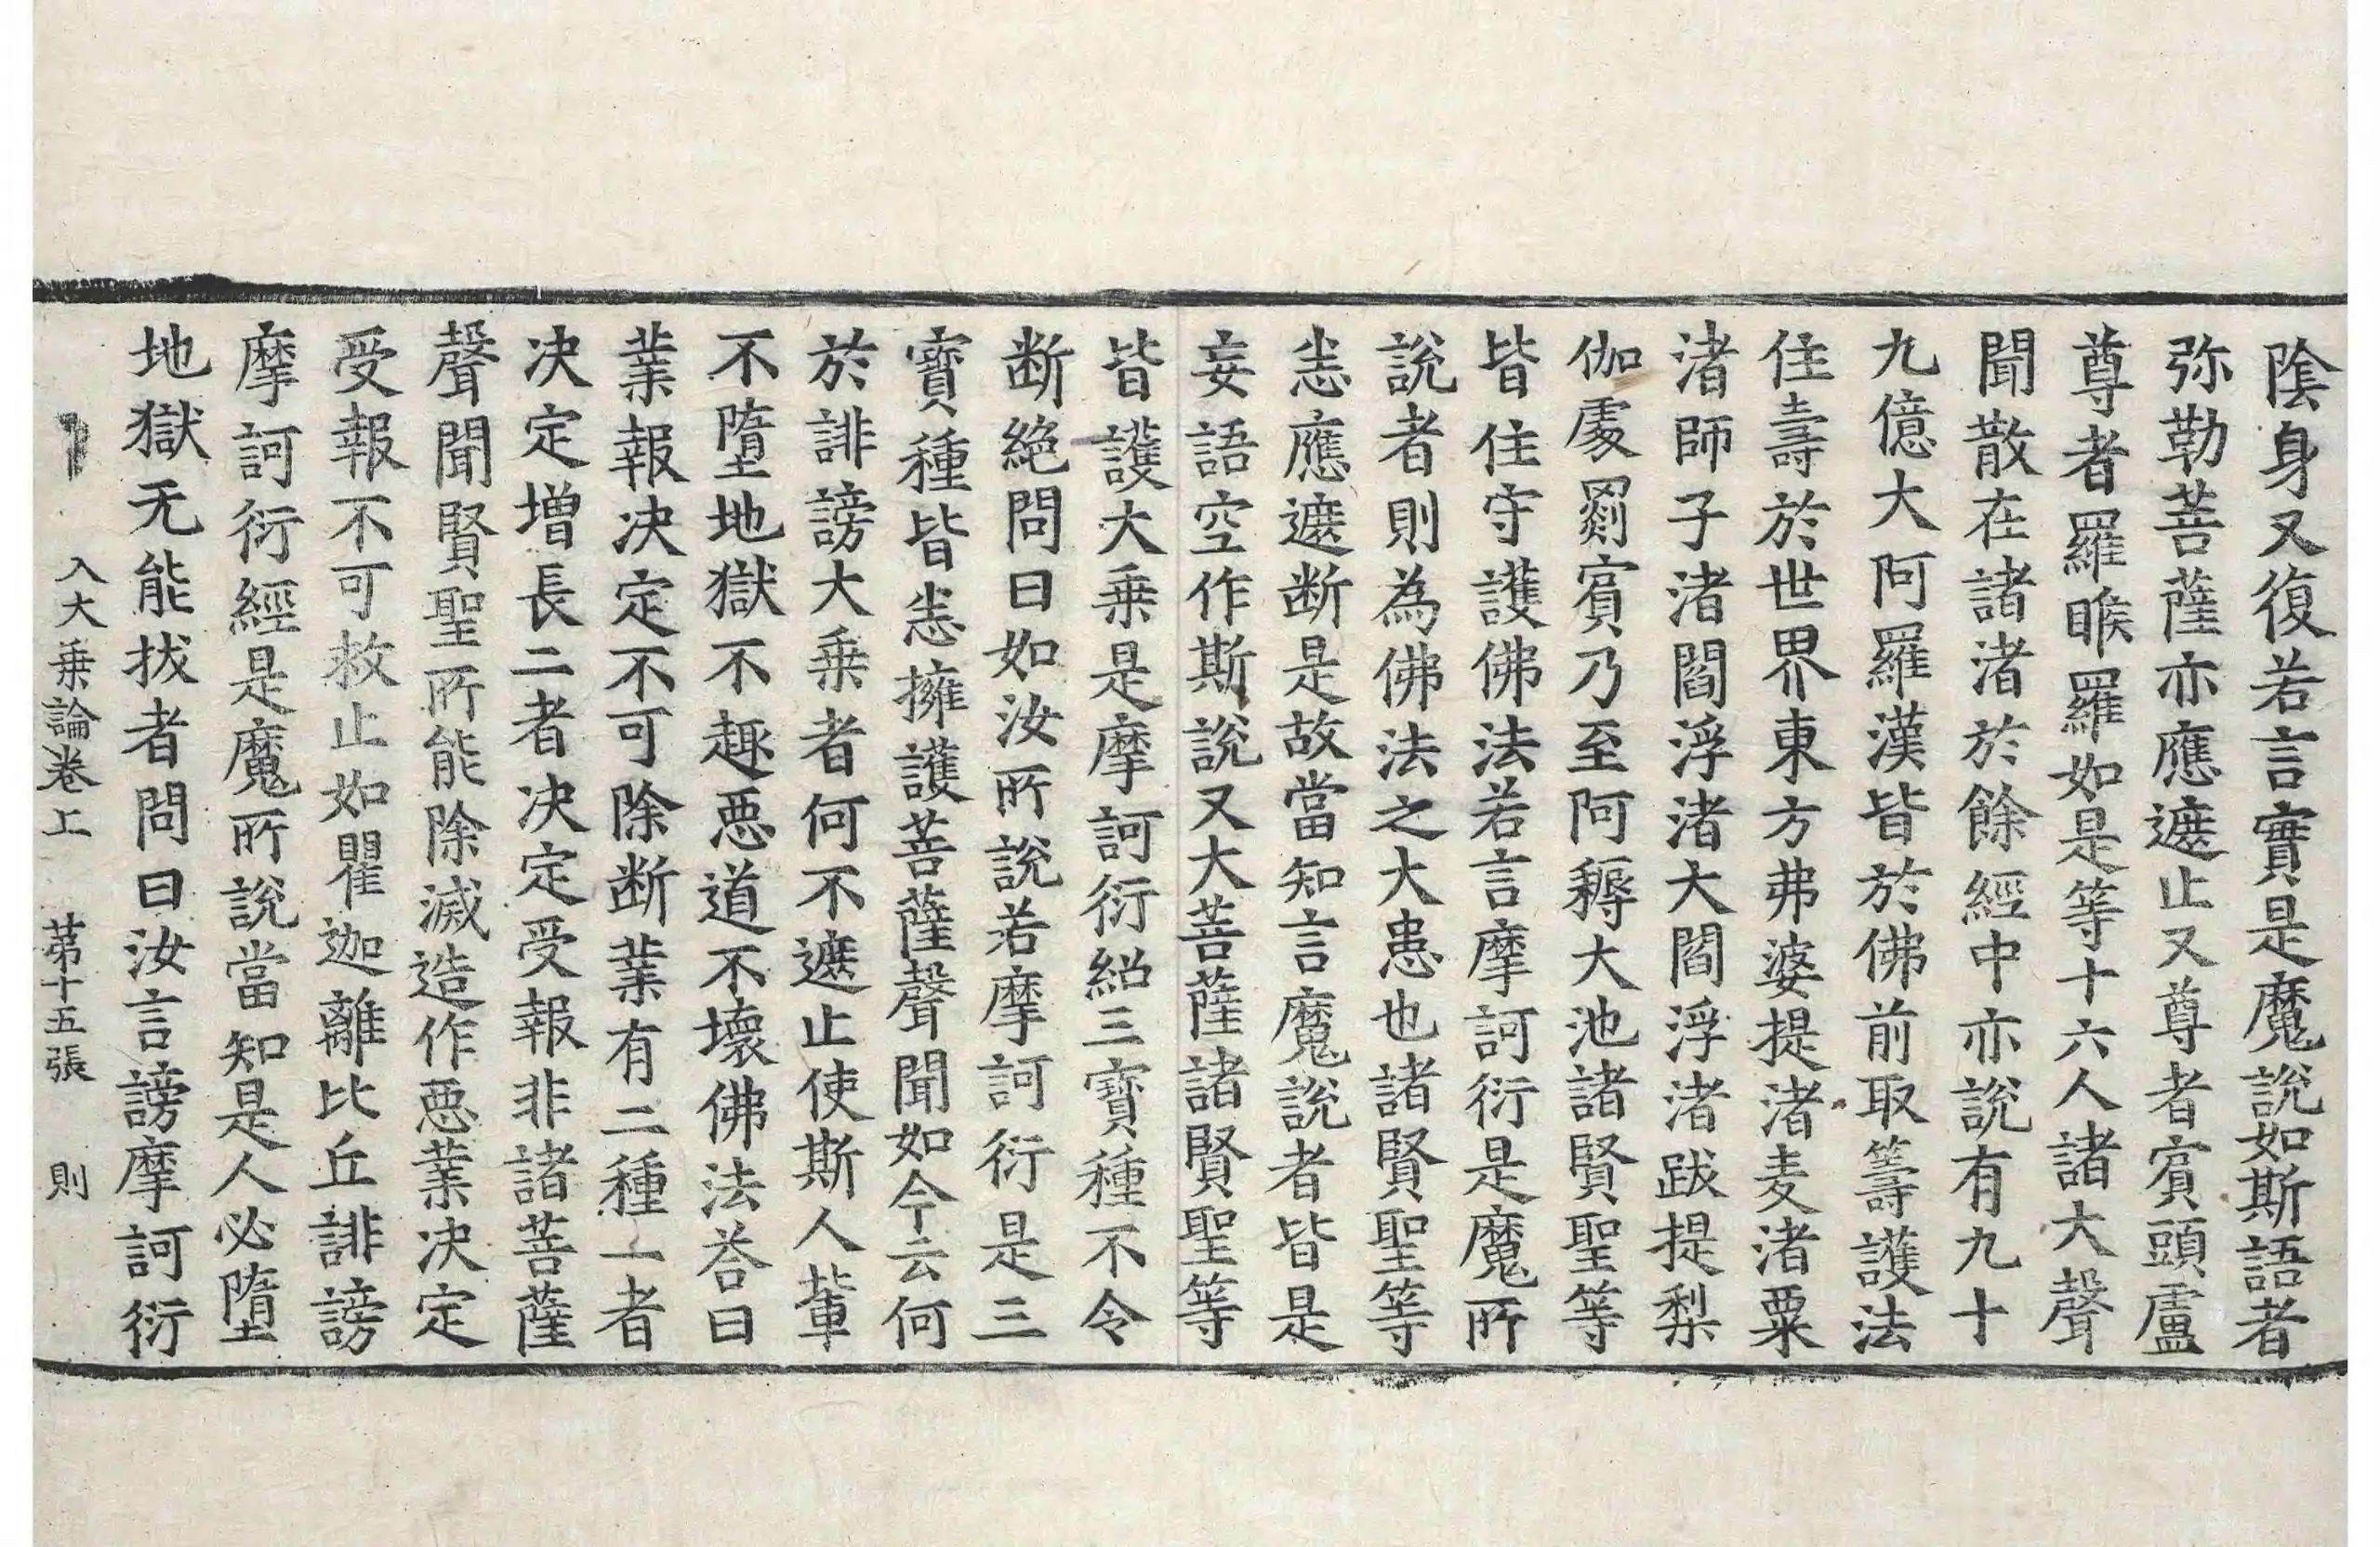 陰身又復若言實是魔說如斯語者
弥勒菩薩亦應遮止又尊者賓頭盧
尊者羅睺羅如是等十六人諸大聲
聞散在諸渚於餘經中亦說有九十
九億大阿羅漢皆於佛前取籌護法
住壽於世界東方弗婆提渚麦渚粟
渚師子渚閻浮渚大閻浮渚跋提梨
伽處罽賓乃至阿耨大池諸賢聖等
皆住守護佛法若言摩訶衍是魔所
說者則為佛法之大患也諸賢聖等
恚應遮断是故當知言魔說者皆是
妄語空作斯說又大菩薩諸賢聖等
皆護大乗是摩訶衍紹三寶種不令
断絶問曰如汝所說若摩訶衍是三
寶種皆恚擁護菩薩聲聞如今云何
於誹謗大乗者何不遮止使斯人輩
不墮地獄不趣惡道不壞佛法荅曰
業報决定不可除断業有二種一者
决定增長二者决定受報非諸菩薩
聲聞賢聖所能除滅造作惡業决定
受報不可救止如瞿迦離比丘誹謗
摩訶衍經是魔所說當知是人必墮
地獄无能拔者問曰汝言謗摩訶衍
入大乗論卷上 苐十五張 則